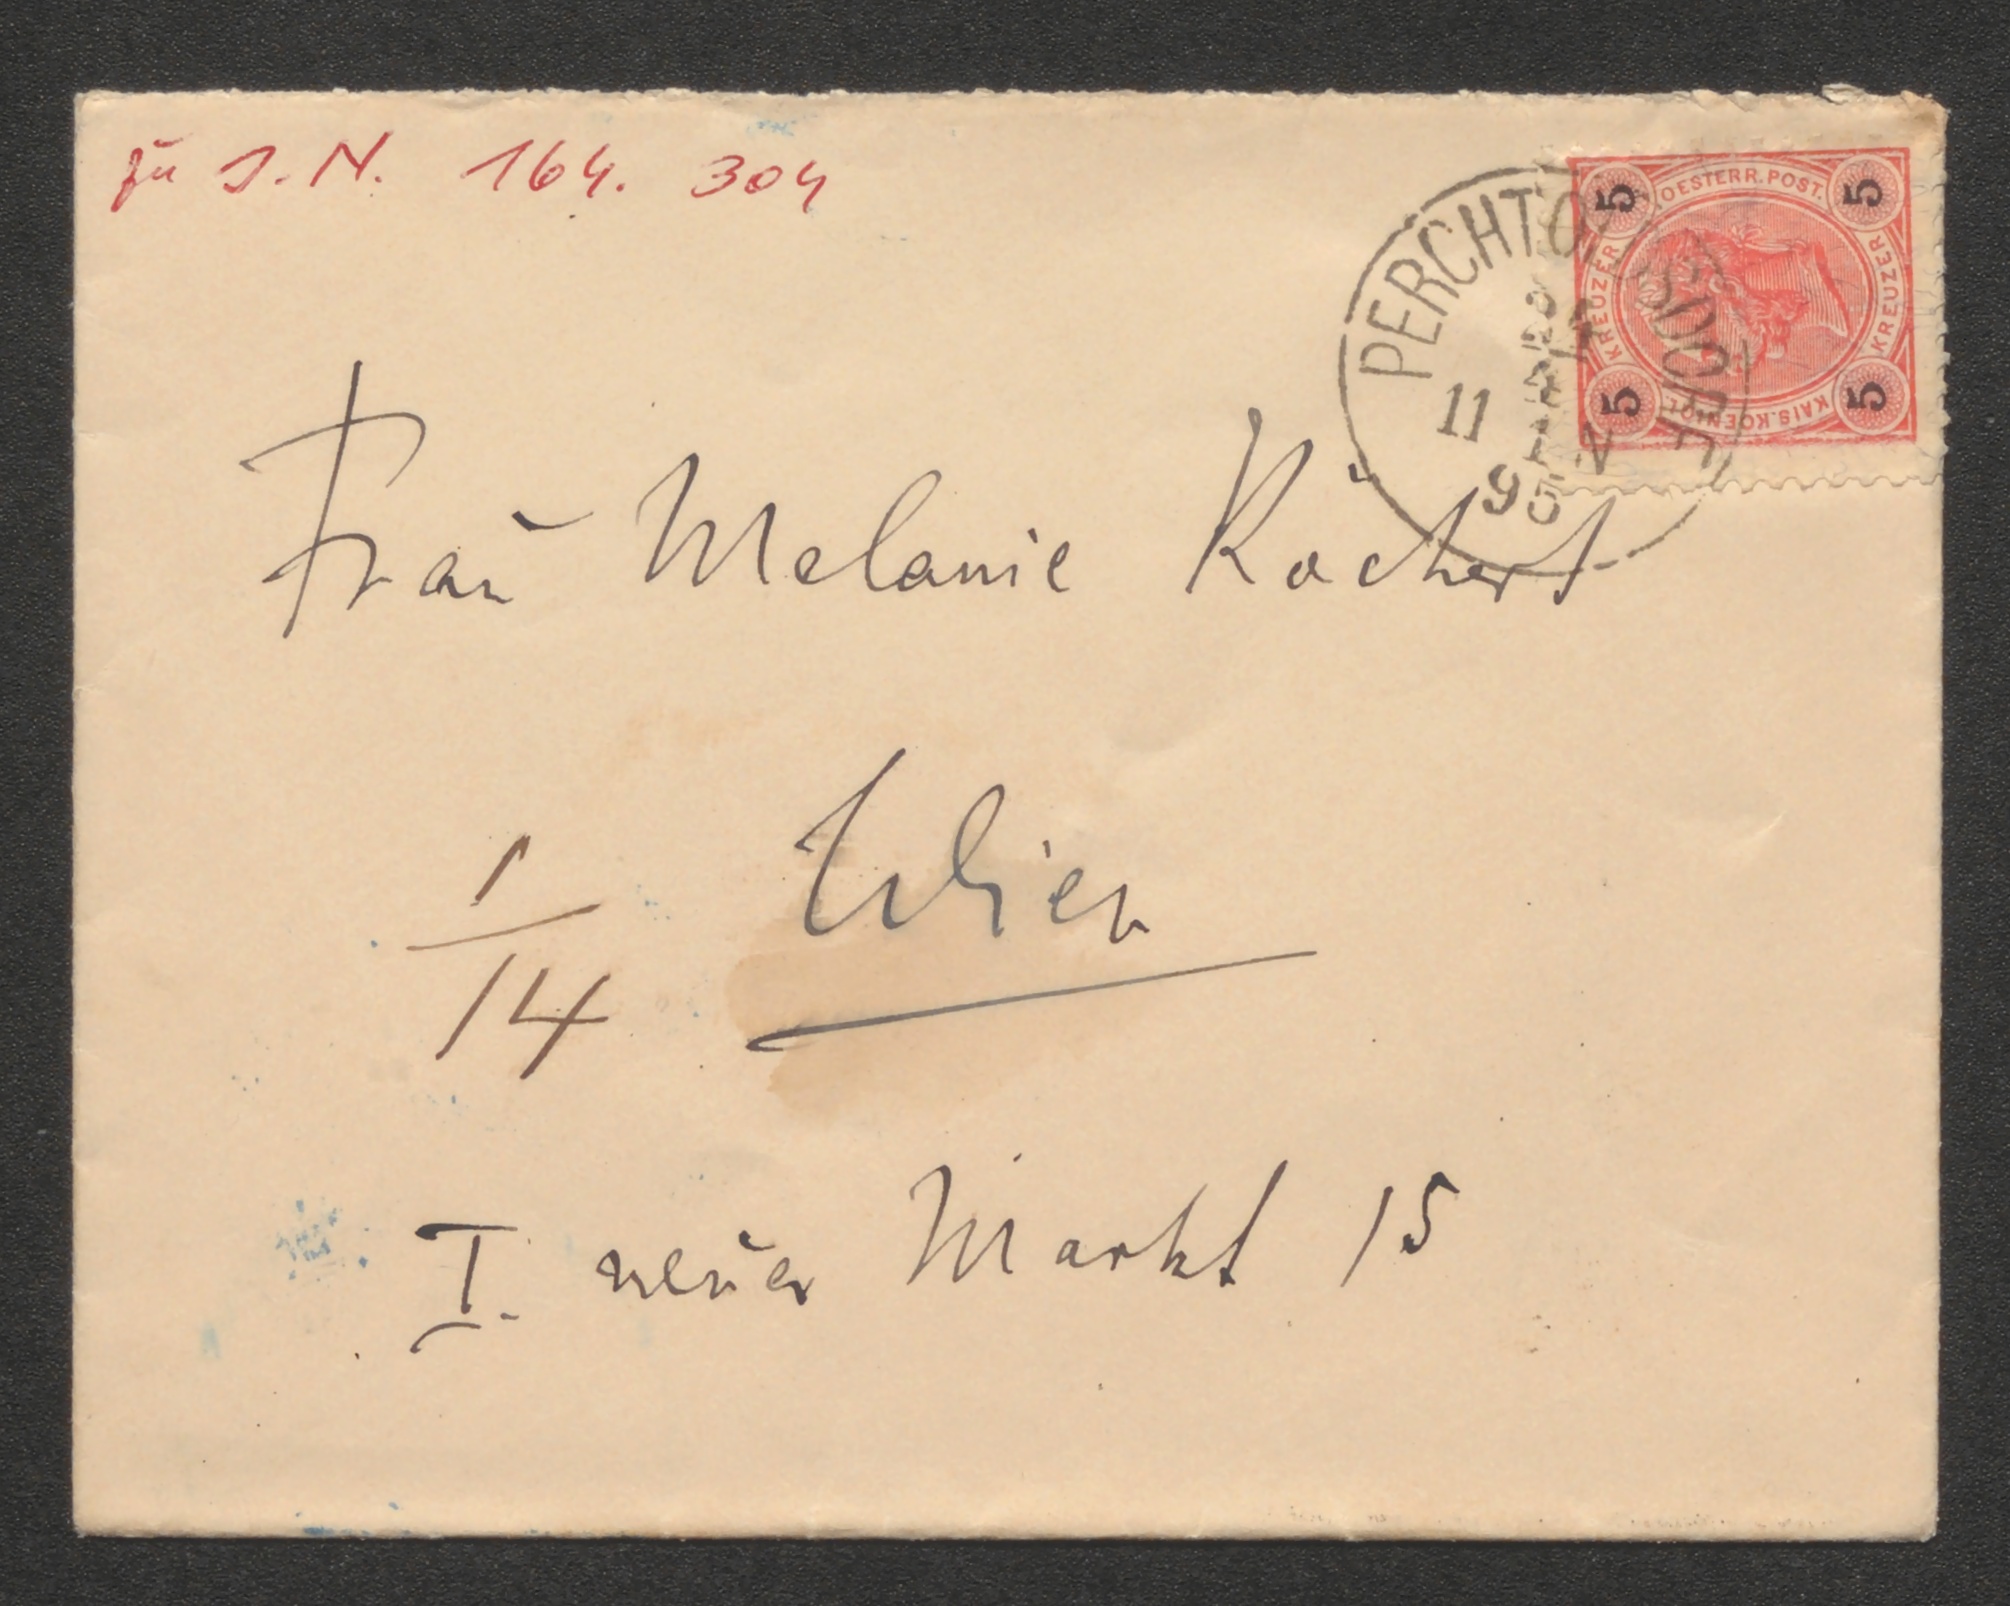 zu I.N. 164.304
OESTERR. POST.
KAIS. KOENIGL.
KREUZER
KREUZER
5
5
5
5
PERCHTOLDSDORF
11
Frau Melanie Köchert
1/14
Wien
I. neuer Markt 15